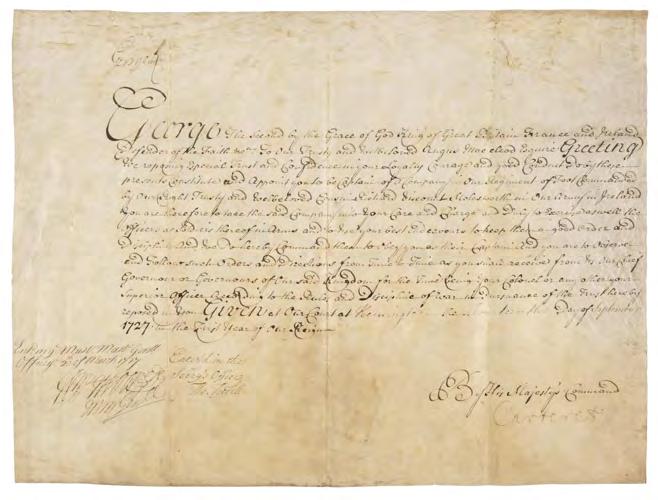 George R
George the Second by the Grace of God King of Great Britain France and Ireland
Defender of the Faith &c. To Our Trusty and Welbeloved Angus Macleod Esquire Greeting
We reposing especial Trust and Confidence in your Loyalty Courage and good Conduct do by these
presents Constitute and Appoint you to be Captain of Company in Our Regiment of Foot Commanded
by Our Right Trusty and Welbeloved Cousin Richard Viscount Molesworth in Our Army in Ireland
You are therefore to take the said Company into Your Care and Charge and duly to Exercise as well the
Officers as Soldiers thereof in Arms and to use your best Endeavours to keep them in good Order and
Discipline And We do hereby Command them to Obey you as their Captain And you are to Observe
and Follow such Orders and Directions from Time to Time as you shall receive from Us Our Chief
Governor or Governours of Our said Kingdom for the Time being Your Colonel or any other your
Superior Officer According to the Rules and Discipline of War in Pursuance of the Trust hereby
reposed in You Given at Our Court at Kensington the Day of September
1727 In the First Year of Our Reign
Office March 1727
Entred in the
Secrys Office
By His Majestys Command
Carteret